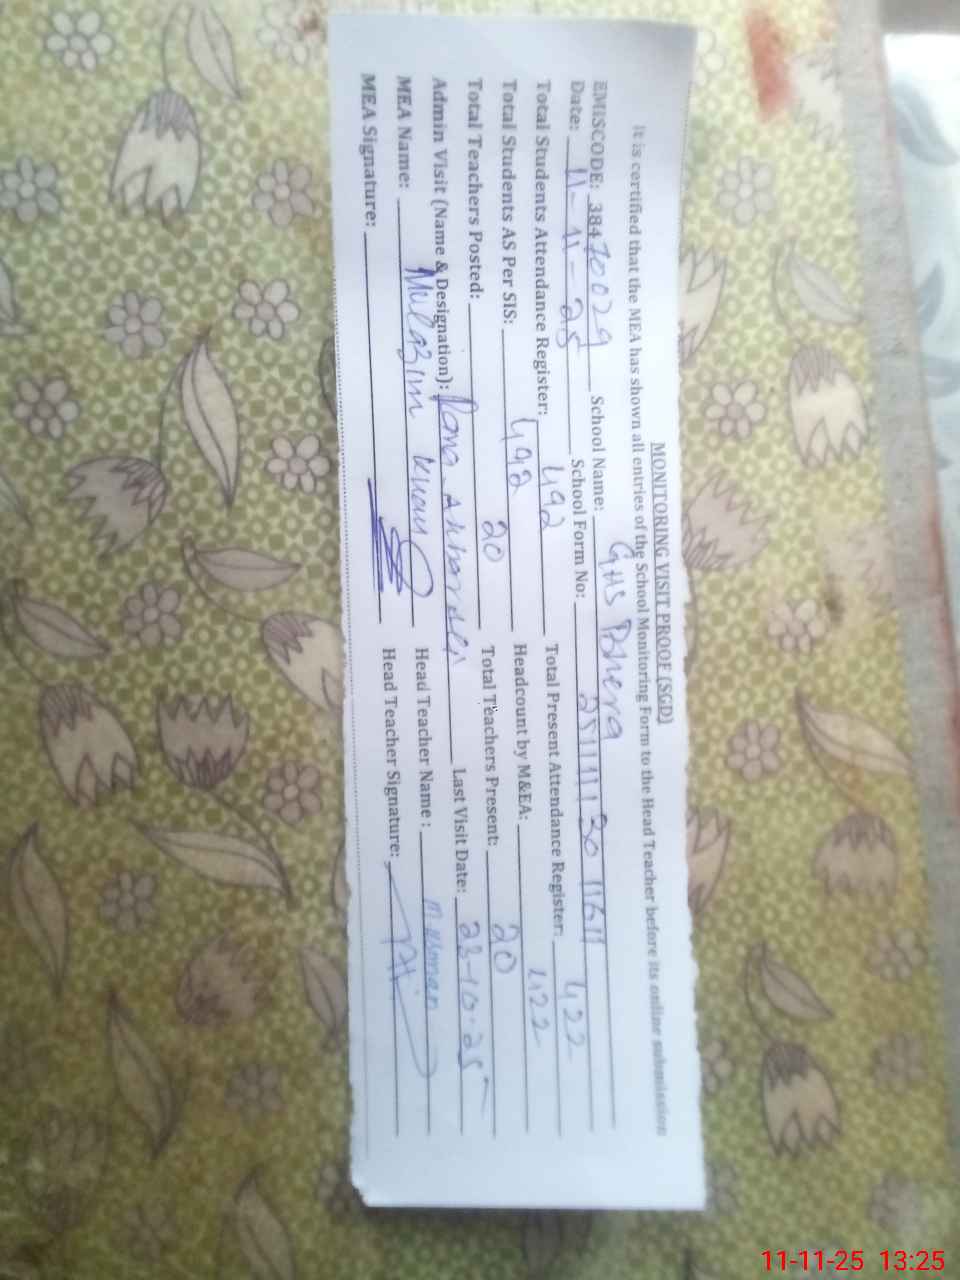 MONITORING VISIT PROOF (SGD)
It is certified that the MEA has shown all entries of the School Monitoring Form to the Head Teacher before its online submission
EMISCODE: 38470029 School Name: GHS Bhera
Date: 11-11-25 School Form No:
Total Students Attendance Register: 492 Total Present Attendance Register: 422
Total Students AS Per SIS: 492 Headcount by M&EA: 422
Total Teachers Posted: 20 Total Teachers Present: 20
Admin Visit (Name & Designation): Last Visit Date: 23-10-25
MEA Name: Mulazim Khan Head Teacher Name : M. Usman
MEA Signature: Head Teacher Signature:
11-11-25 13:25